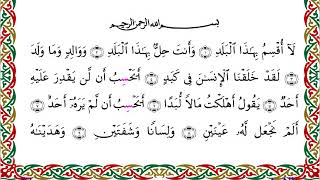 بسم الله الرحمن الرحيم
لَآ أُقْسِمُ بِهَٰذَا ٱلْبَلَدِ ۝ وَأَنتَ حِلٌّۢ بِهَٰذَا ٱلْبَلَدِ ۝ وَوَالِدٍ وَمَا وَلَدَ
۝ لَقَدْ خَلَقْنَا ٱلْإِنسَٰنَ فِى كَبَدٍ ۝ أَيَحْسَبُ أَن لَّن يَقْدِرَ عَلَيْهِ
أَحَدٌ ۝ يَقُولُ أَهْلَكْتُ مَالًا لُّبَدًا ۝ أَيَحْسَبُ أَن لَّمْ يَرَهُۥٓ أَحَدٌ ۝
أَلَمْ نَجْعَل لَّهُۥ عَيْنَيْنِ ۝ وَلِسَانًا وَشَفَتَيْنِ ۝ وَهَدَيْنَٰهُ